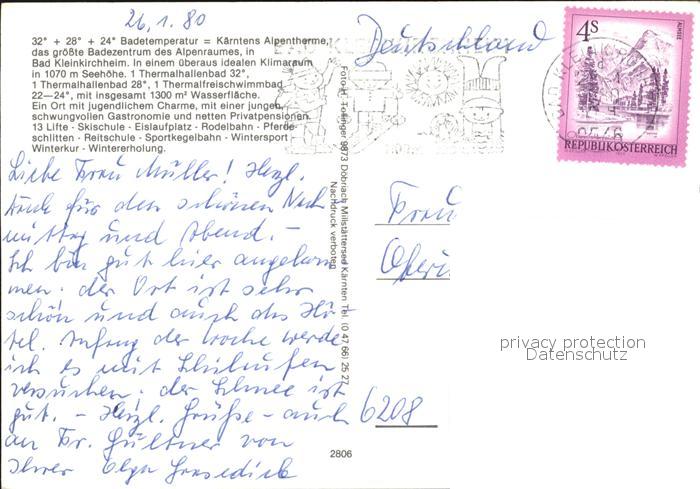 26.1.80
Deutschland
32° + 28° + 24° Badetemperatur = Kärntens Alpentherme,
das größte Badezentrum des Alpenraumes, in
Bad Kleinkirchheim. In einem überaus idealen Klimaraum
in 1070 m Seehöhe. 1 Thermalhallenbad 32°,
1 Thermalhallenbad 28°, 1 Thermalfreischwimmbad
22—24°, mit insgesamt 1300 m² Wasserfläche.
Ein Ort mit jugendlichem Charme, mit einer jungen,
schwungvollen Gastronomie und netten Privatpensionen.
13 Lifte - Skischule - Eislaufplatz - Rodelbahn - Pferde-
schlitten - Reitschule - Sportkegelbahn - Wintersport -
Winterkur - Wintererholung.
Liebe Frau Müller! Herzl.
Dank für den schönen Nach
mittag und Abend. –
Ich bin gut hier angekom
men. der Ort ist sehr
schön und auch das Ho-
tel. Anfang der Woche werde
ich es mit Schilaufen
versuchen. der Schnee ist
gut. – Herzl. Grüße – auch
an Fr. von
Ihrer Olga
Foto H. Tollinger 9873 Döbriach Millstättersee Kärnten Tel. (0 47 66) 25 27
Nachdruck verboten
2806
4S
ALMSEE
REPUBLIK ÖSTERREICH
9546
Frau
6208
privacy protection
Datenschutz